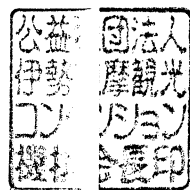 公益 団法人
伊勢 摩観光
コン ンション
機 会長印